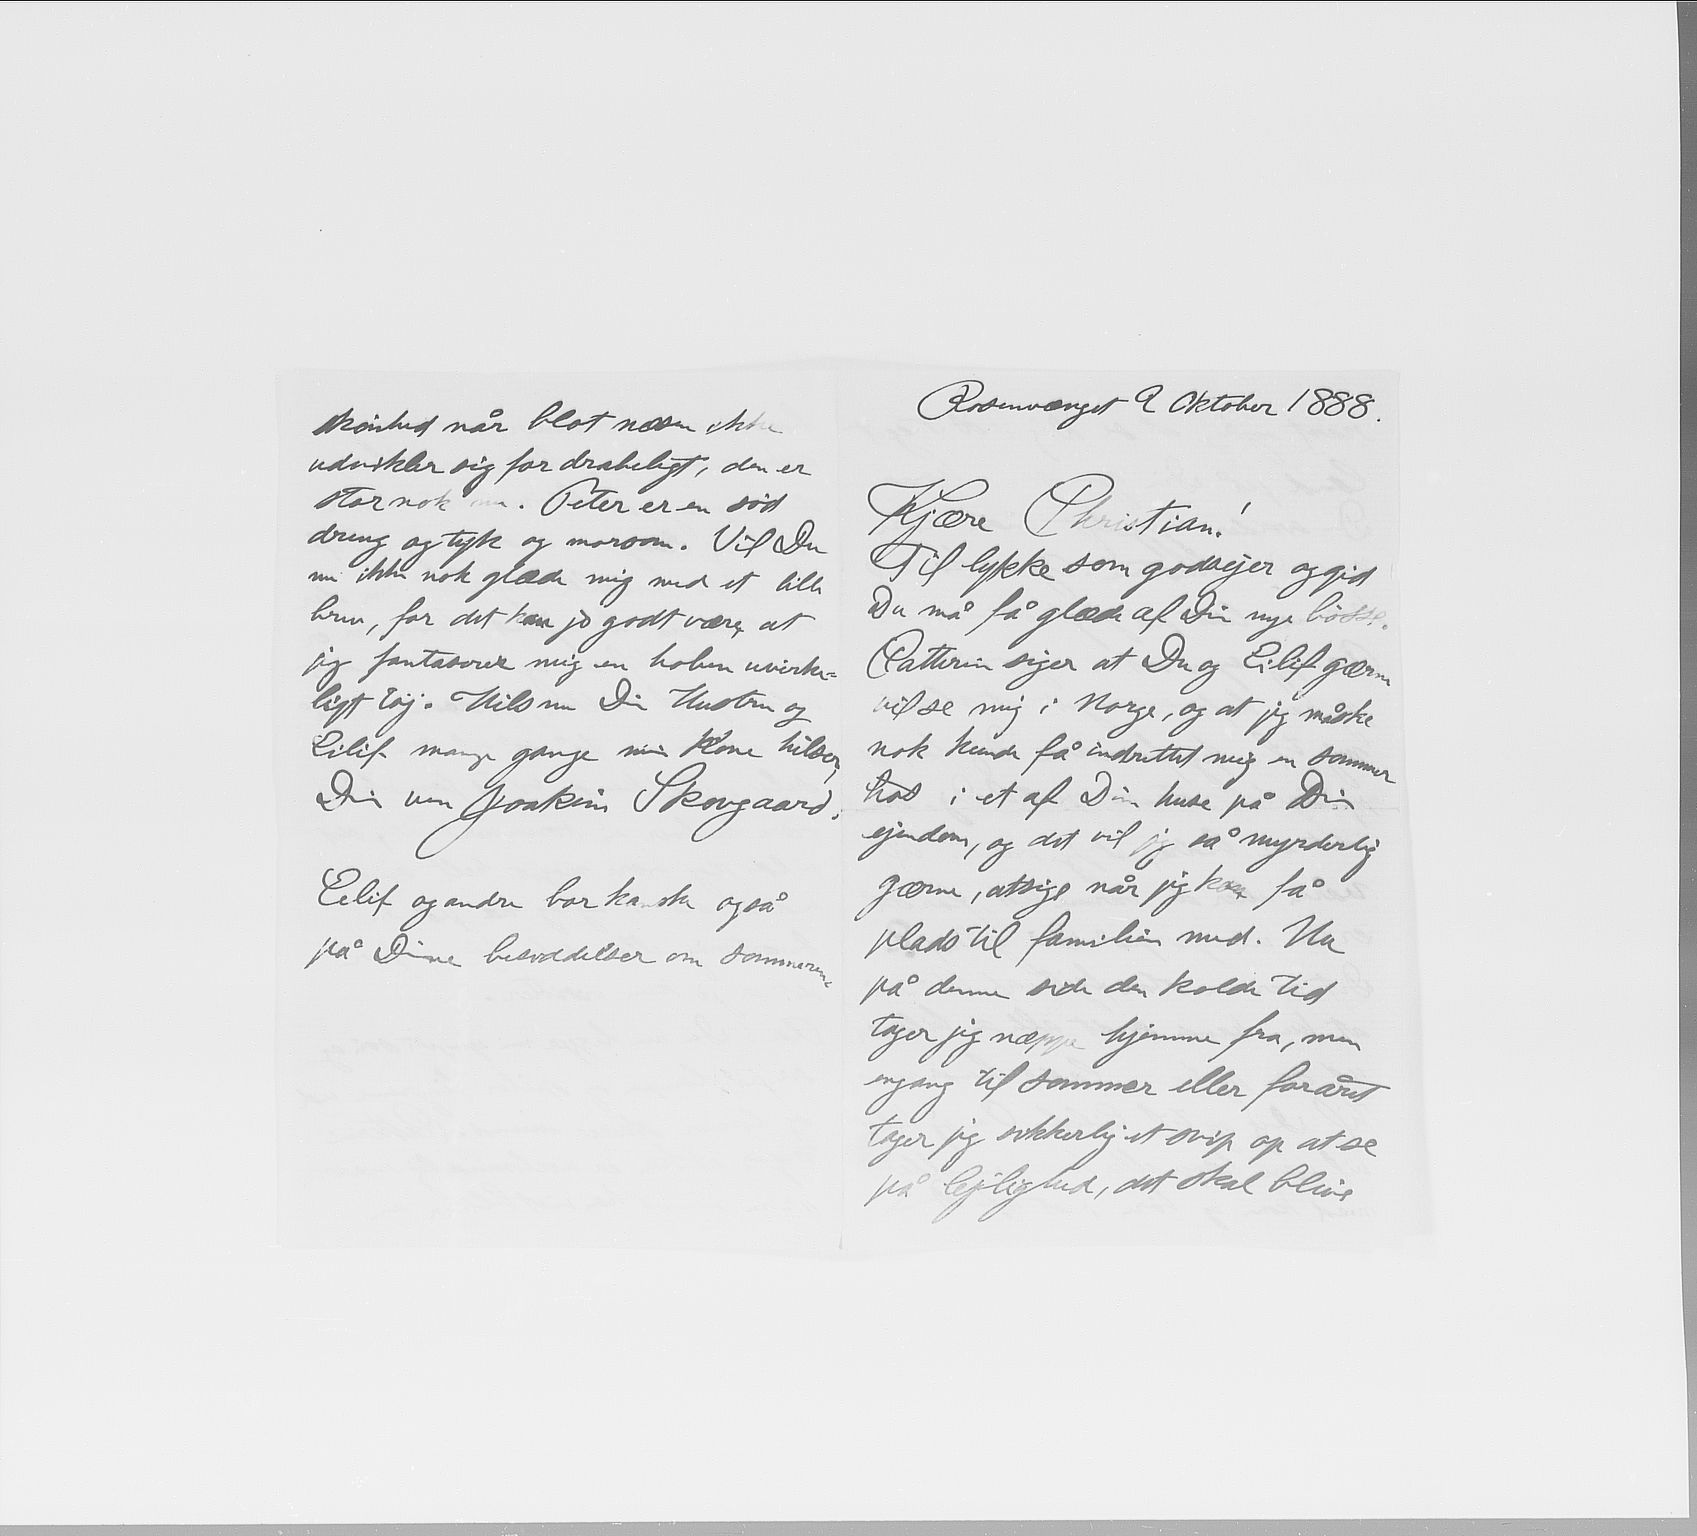 Rosenvænget 9 Oktober 1888.
Kjære Christian!
Til lykke som godsejer og gid
Du må få glæde af Din nye bösse.
Catterin siger at Du og Eilif gærne
vil se mig i Norge, og at jeg måske
nok kunde få indrettet mig en sommer
hos i et af Dine huse på Din
ejendom, og det vil jeg så myrderlig
gærne, atsige når jeg kan få
plads til familien med. Nu
på denne side den kolde tid
tager jeg næppe hjemme fra, men
engang til sommer eller foråret
tager jeg sikkerlig et svip op at se
på lejlighed, det skal blive
skönhed når blot næsen ikke
udvikler sig for drabeligt, den er
stor nok nu. Peter er en söd
dreng og tyk og morsom. Vil Du
nu ikke nok glæde mig med et lille
brev, for det kan jo godt være, at
jeg fantaserer mig en hoben uvirke=
ligt töj. Hils nu Din Hustru og
Eilif mange gange min Kone hilser,
Din ven Joakim Skovgaard.
Eilif og andre bor kanske også
på Dine besiddelser om sommeren.